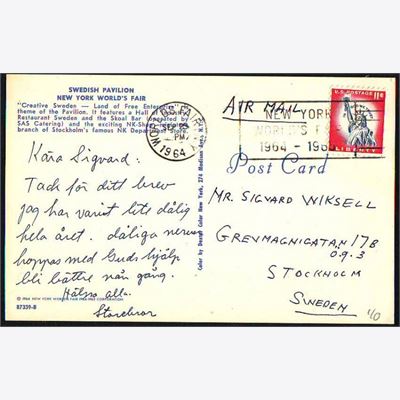 SWEDISH PAVILION
NEW YORK WORLD'S FAIR
"Creative Sweden — Land of Free Enterprise"
theme of the Pavilion. It features a Hall of
Restaurant Sweden and the Skoal Bar (operated by
SAS Catering) and the exciting NK-Shop, a
branch of Stockholm's famous NK Department Store.
WORLD'S FAIR
PM
1964
NEW YORK
WORLD'S FAIR
1964 - 1965
U.S. POSTAGE 11¢
LIBERTY
AIR MAIL
Post Card
Kära Sigvard:
Tack för ditt brev
jag har varit lite dålig
hela året. dåliga nerver
hoppas med Guds hjälp
bli bättre nån gång.
Hälsa alla.
Storebror
MR. SIGVARD WIKSELL
GREVMAGNIGATAN 17B
ö.g. 3
STOCKHOLM
SWEDEN
Color by Dexter Color New York, 274 Madison Ave., N.Y.
© 1964 NEW YORK WORLD'S FAIR 1964-1965 CORPORATION
87339-B